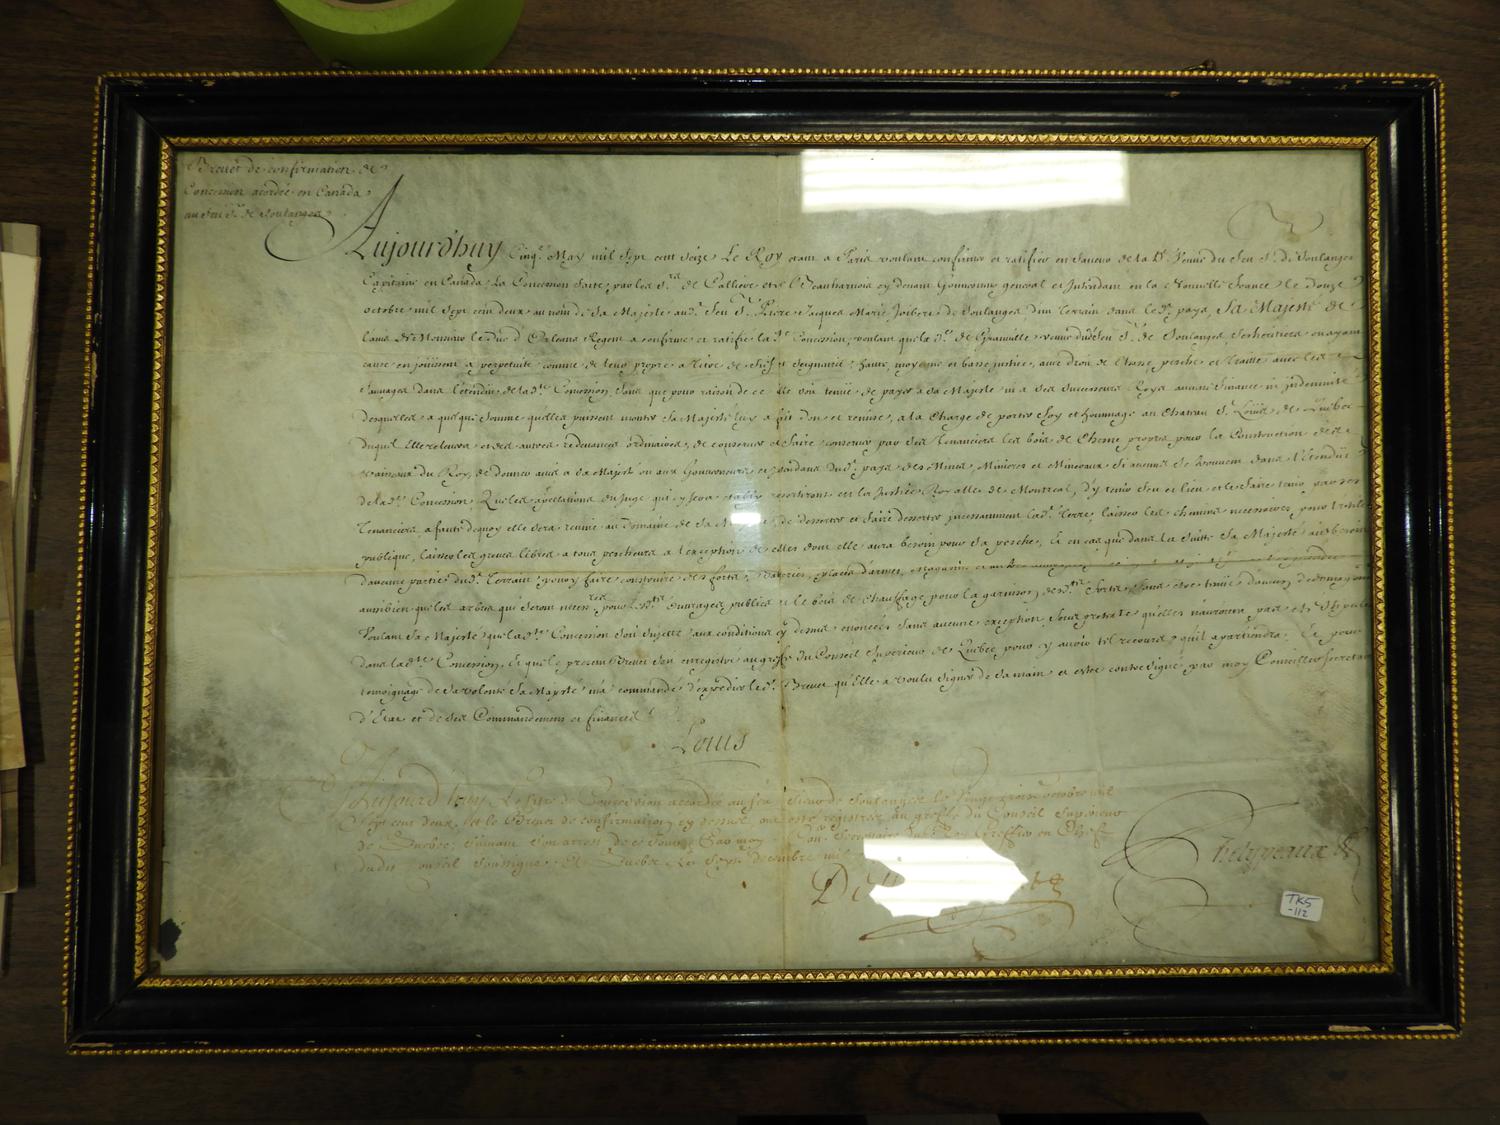 Brevet de confirmation de
Concession acordée en Canada
au feu Sr. de Soulanges
Aujourd'huy Cinqe. May mil sept cent seize Le Roy etant a Paris voulant confirmer et ratifier en faveur de la De. veuve du feu Sr. de Soulanges
Capitaine en Canada, la Concession faite par les Srs. de Calliere et de Beauharnois cy devant Gouverneur general et Intendant en la Nouvelle france le Douze
octobre mil sept cent deux au nom de Sa Majesté aud. feu Sr. Pierre Jacques Marie Joibert de Soulanges d'un terrain dans led. pays, Sa Majesté de
l'avis de Monsieur le Duc d'Orleans Regent a confirmé et ratifié lad. Concession, voulant que la De. de veuve dud. feu Sr. de Soulanges ses heritiers ou ayans
cause en jouissent a perpetuité comme de leur propre a titre de fief et Seigneurie haute, moyenne et basse justice, avec droit de Chasse, pesche et traitte avec les
Sauvages dans l'etendüe de lad. Concession, Sans que pour raison de ce elle soit tenüe de payer a Sa Majesté ni a Ses Successeurs Roys aucune finance ni indemnité
desquelles a quelque somme qu'elles puissent monter Sa Majesté luy a fait don et remise, a la Charge de porter foy et hommage au Chateau St. Loüis de Quebec
duquel Elle relevera et des autres redevances ordinaires, de conserver et faire conserver par Ses tenanciers les bois de Chesne propres pour la Construction des
vaisseaux du Roy, de donner avis a Sa Majesté ou aux Gouverneurs et Intendans dud. pays des Mines, Minieres et Mineraux si aucuns se trouvent dans l'etendüe
de lad. Concession, Que les apellations du juge qui y sera etably ressortiront en la Justice Royalle de Montreal, d'y tenir feu et lieu et le faire tenir par ses
Tenanciers a faute de quoy elle sera reunie au Domaine de Sa Majesté, de deserter et faire deserter incessamment lad. Terre, laisser les chemins necessaires pour l'utilité
publique, laisser les greves libres a tous pescheurs a l'exception de celles dont elle aura besoin pour sa pesche, Et en cas que dans la suite Sa Majesté ait besoin
d'aucune partie dud. Terrain pour y faire construire des forts, Batteries, places d'armes, Magasins et autres ouvrages
aussi bien que les arbres qui seront necesres. pour lesd. Ouvrages publics et le bois de Chauffage pour la garnison desd. forts Sans etre tenüe d'aucun dedommagement
Voulant Sa Majesté que lad. Concession soit Sujette aux conditions cy dessus enoncées Sans aucune exception, Sous pretexte qu'elles n'auroient pas eté stipulées
dans lad. Concession, Et que le present Brevet soit enregistré au greffe du Conseil Superieur de Quebec pour y avoir tel recours qu'il apartiendra. Et pour
temoignage de sa volonté Sa Majesté m'a commandé d'expedier le pt. Brevet qu'Elle a voulu signer de sa main et estre contresigné par moy Conseiller Secretaire
d'Etat et de ses Commandemens et finances
Louis
Aujourd'huy Le titre de Concession accordée au feu Sieur de Soulanges le octobre mil
sept cent deux, et le Brevet de confirmation cy dessus, ont esté registrez au greffe du Conseil Superieur
de Quebec, suivant son arrest de ce Jour Par moy Conr. Secretaire du Roy Greffier en Chef
dudit Conseil Soussigné. A Quebec Le Sept decembre mil
Phelypeaux
TK5
-112